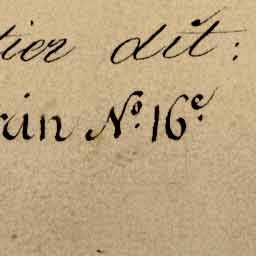 tier dit:
rain N.º 16.e